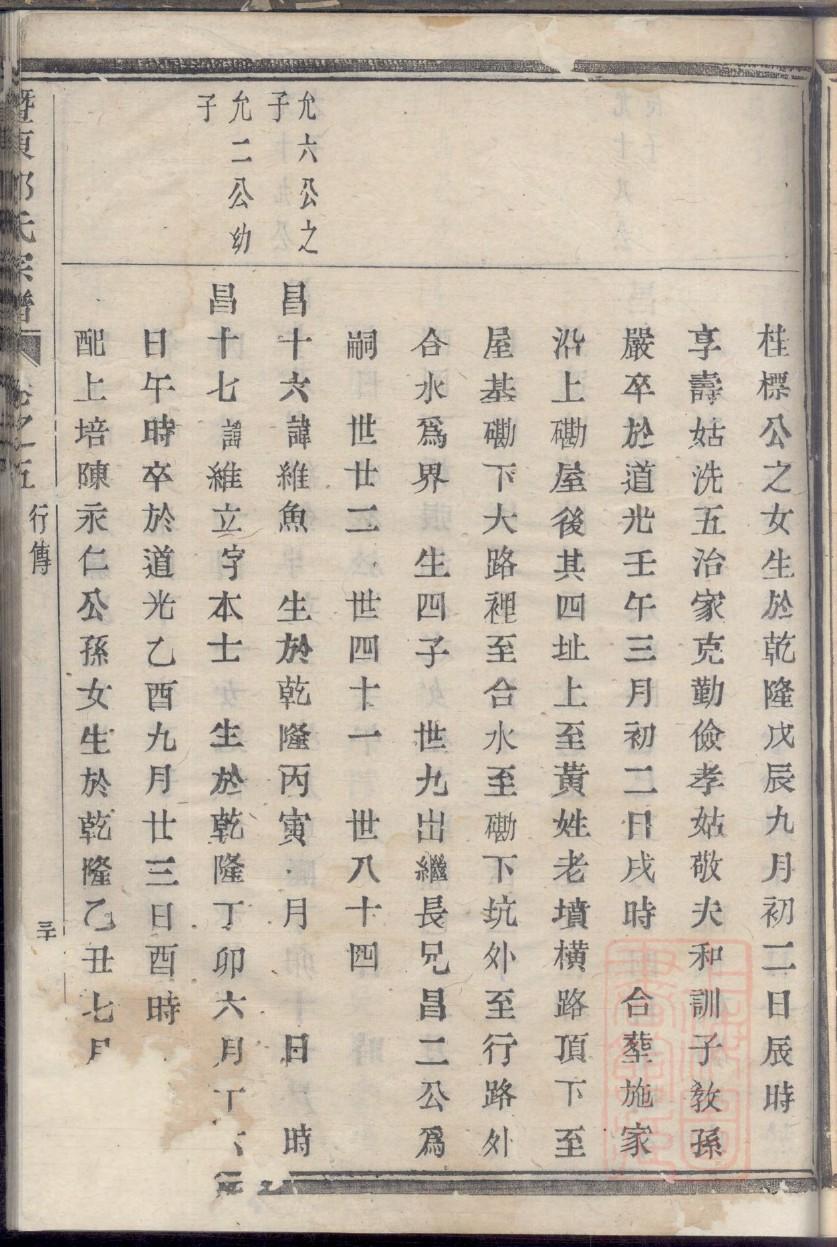 桂標公之女生於乾隆戊辰九月初二日辰時
享壽姑洗五治家克勤儉孝姑敬夫和訓子敎孫
嚴卒於道光壬午三月初二日戌時 合塟施家
沿上磡屋後其四址上至黃姓老墳橫路頂下至
屋基磡下大路裡至合水至磡下坑外至行路外
合水爲界 生四子 世九出繼長兄昌二公爲
嗣 世廿二 世四十一 世八十四
允六公之
子
昌十六諱維魚 生於乾隆丙寅 月 日 時
允二公幼
子
昌十七諱維立字本士 生於乾隆丁卯六月
日午時卒於道光乙酉九月廿三日酉時
配上培陳永仁公孫女生於乾隆乙丑七月
暨東 氏宗譜 卷之五 行傳